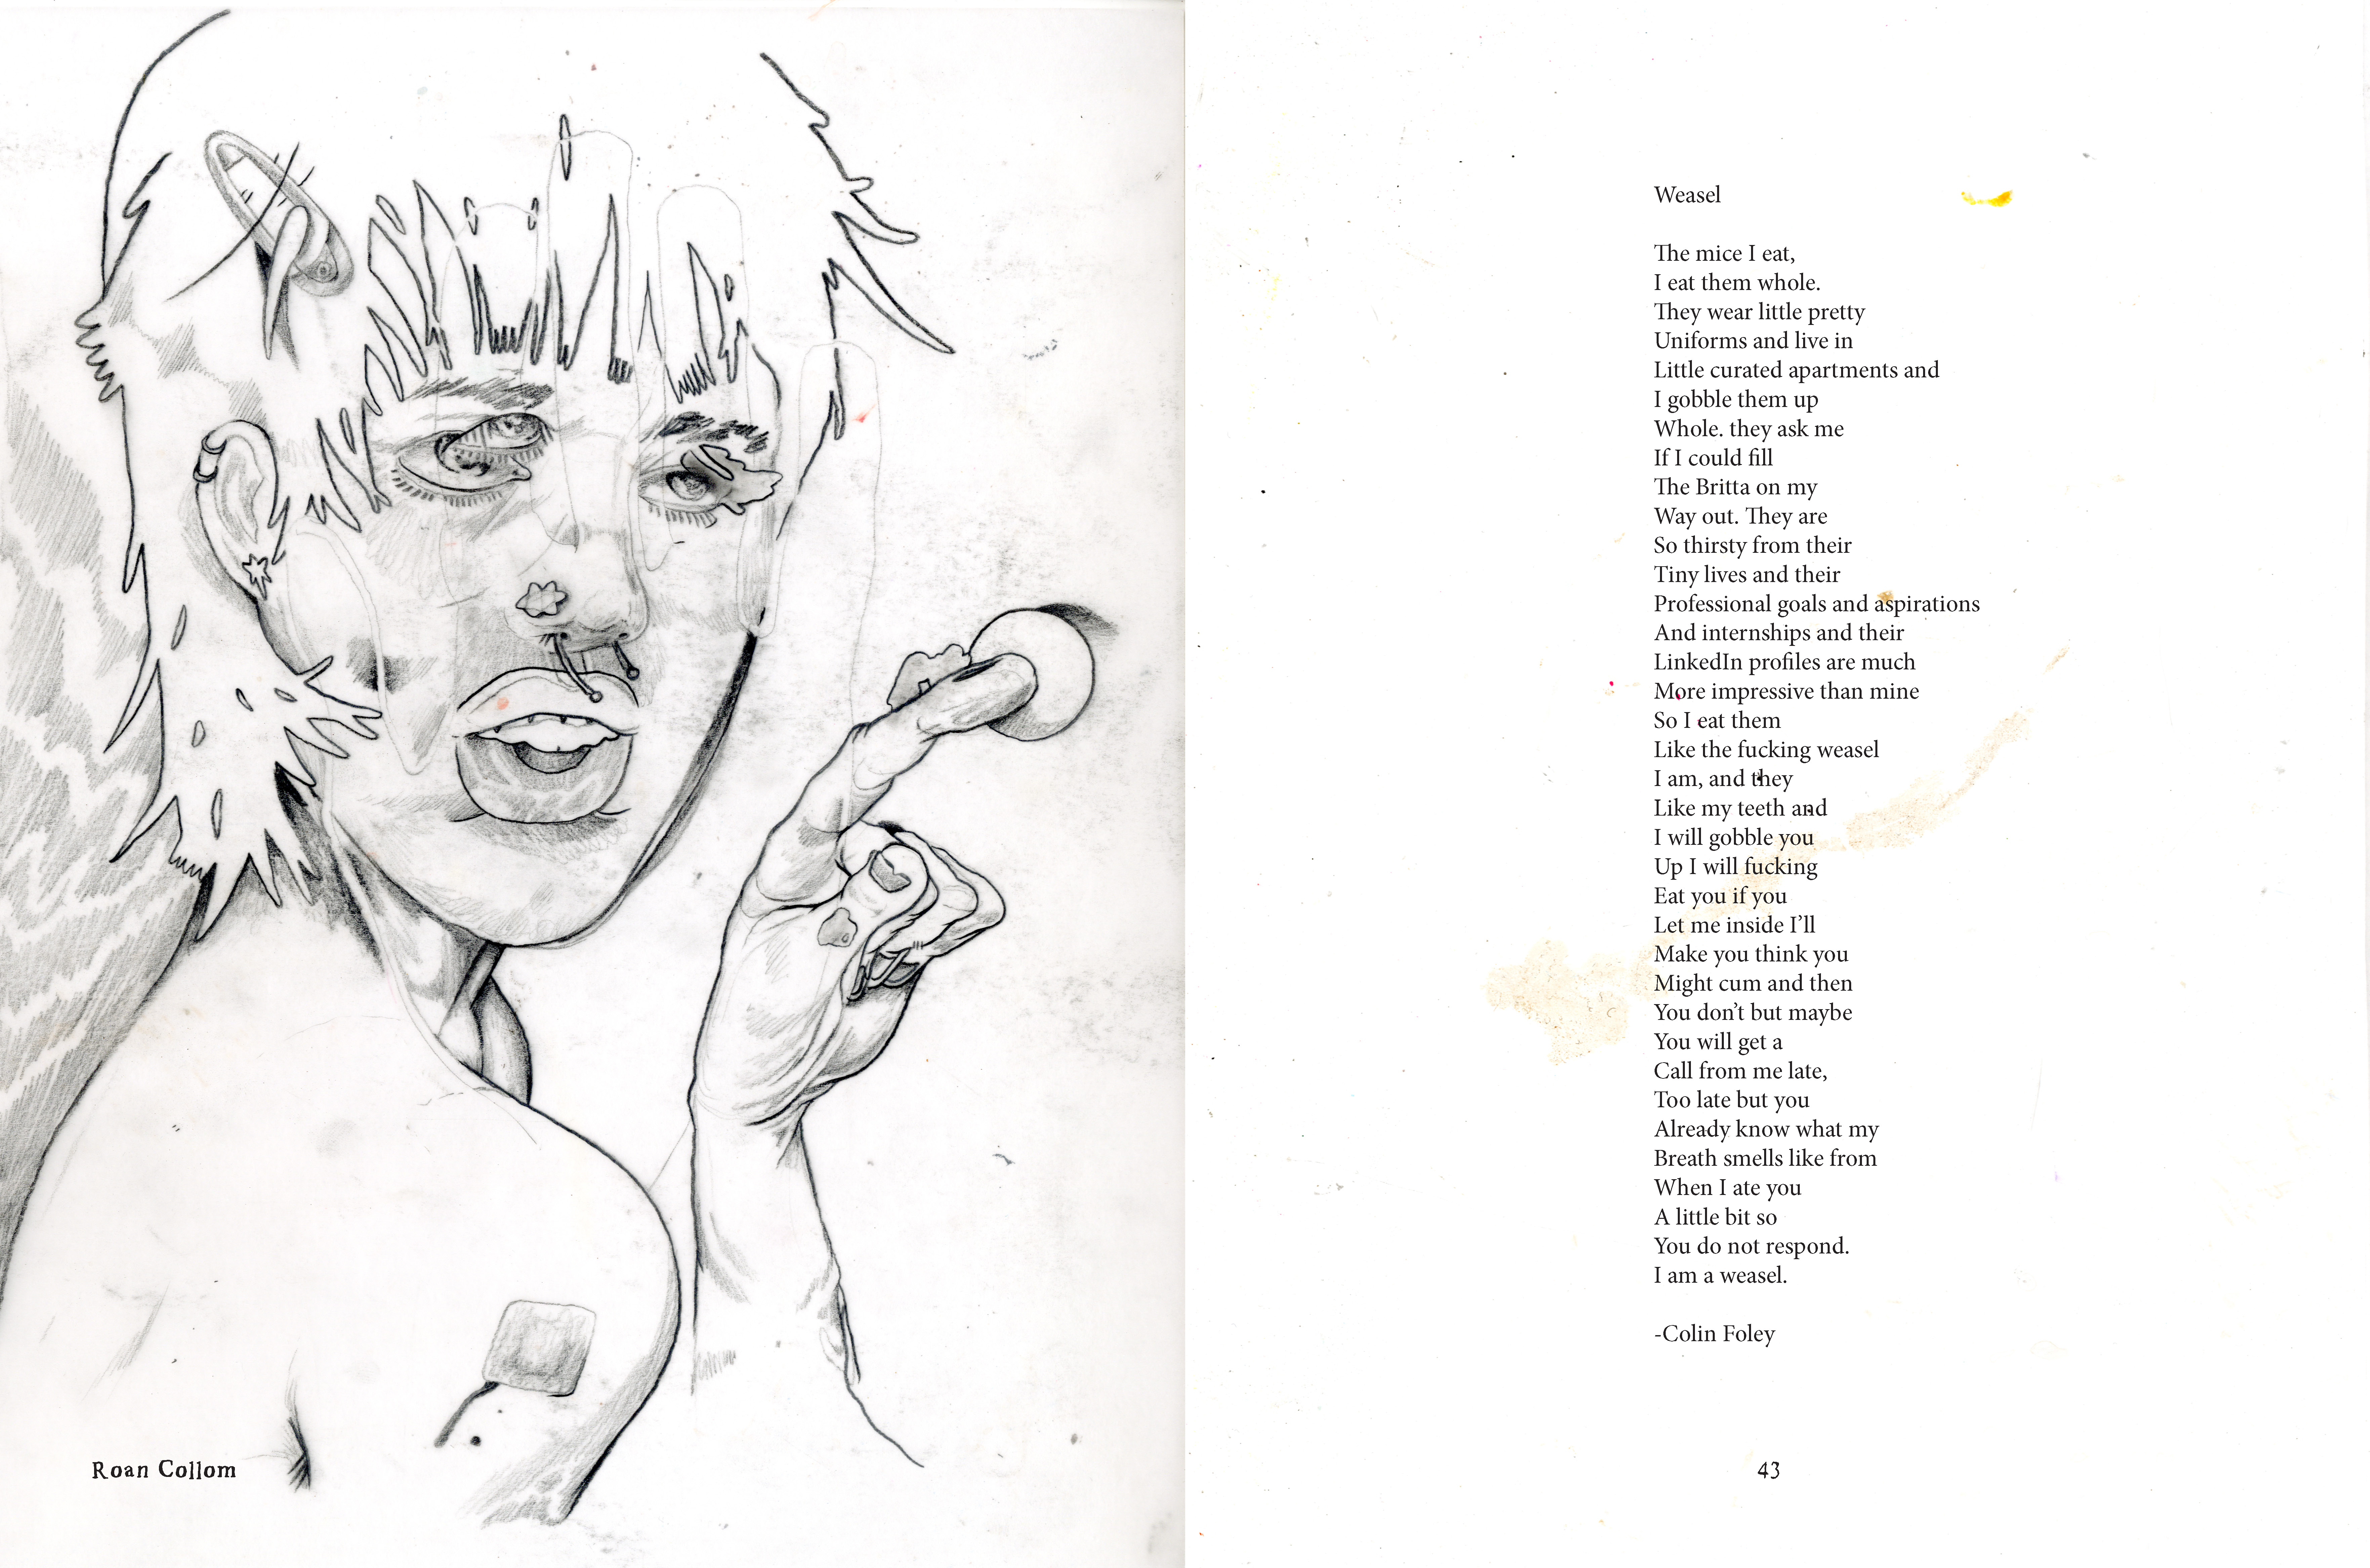 Roan Collom
Weasel
The mice I eat,
I eat them whole.
They wear little pretty
Uniforms and live in
Little curated apartments and
I gobble them up
Whole. they ask me
If I could fill
The Britta on my
Way out. They are
So thirsty from their
Tiny lives and their
Professional goals and aspirations
And internships and their
LinkedIn profiles are much
More impressive than mine
So I eat them
Like the fucking weasel
I am, and they
Like my teeth and
I will gobble you
Up I will fucking
Eat you if you
Let me inside I’ll
Make you think you
Might cum and then
You don’t but maybe
You will get a
Call from me late,
Too late but you
Already know what my
Breath smells like from
When I ate you
A little bit so
You do not respond.
I am a weasel.
-Colin Foley
43